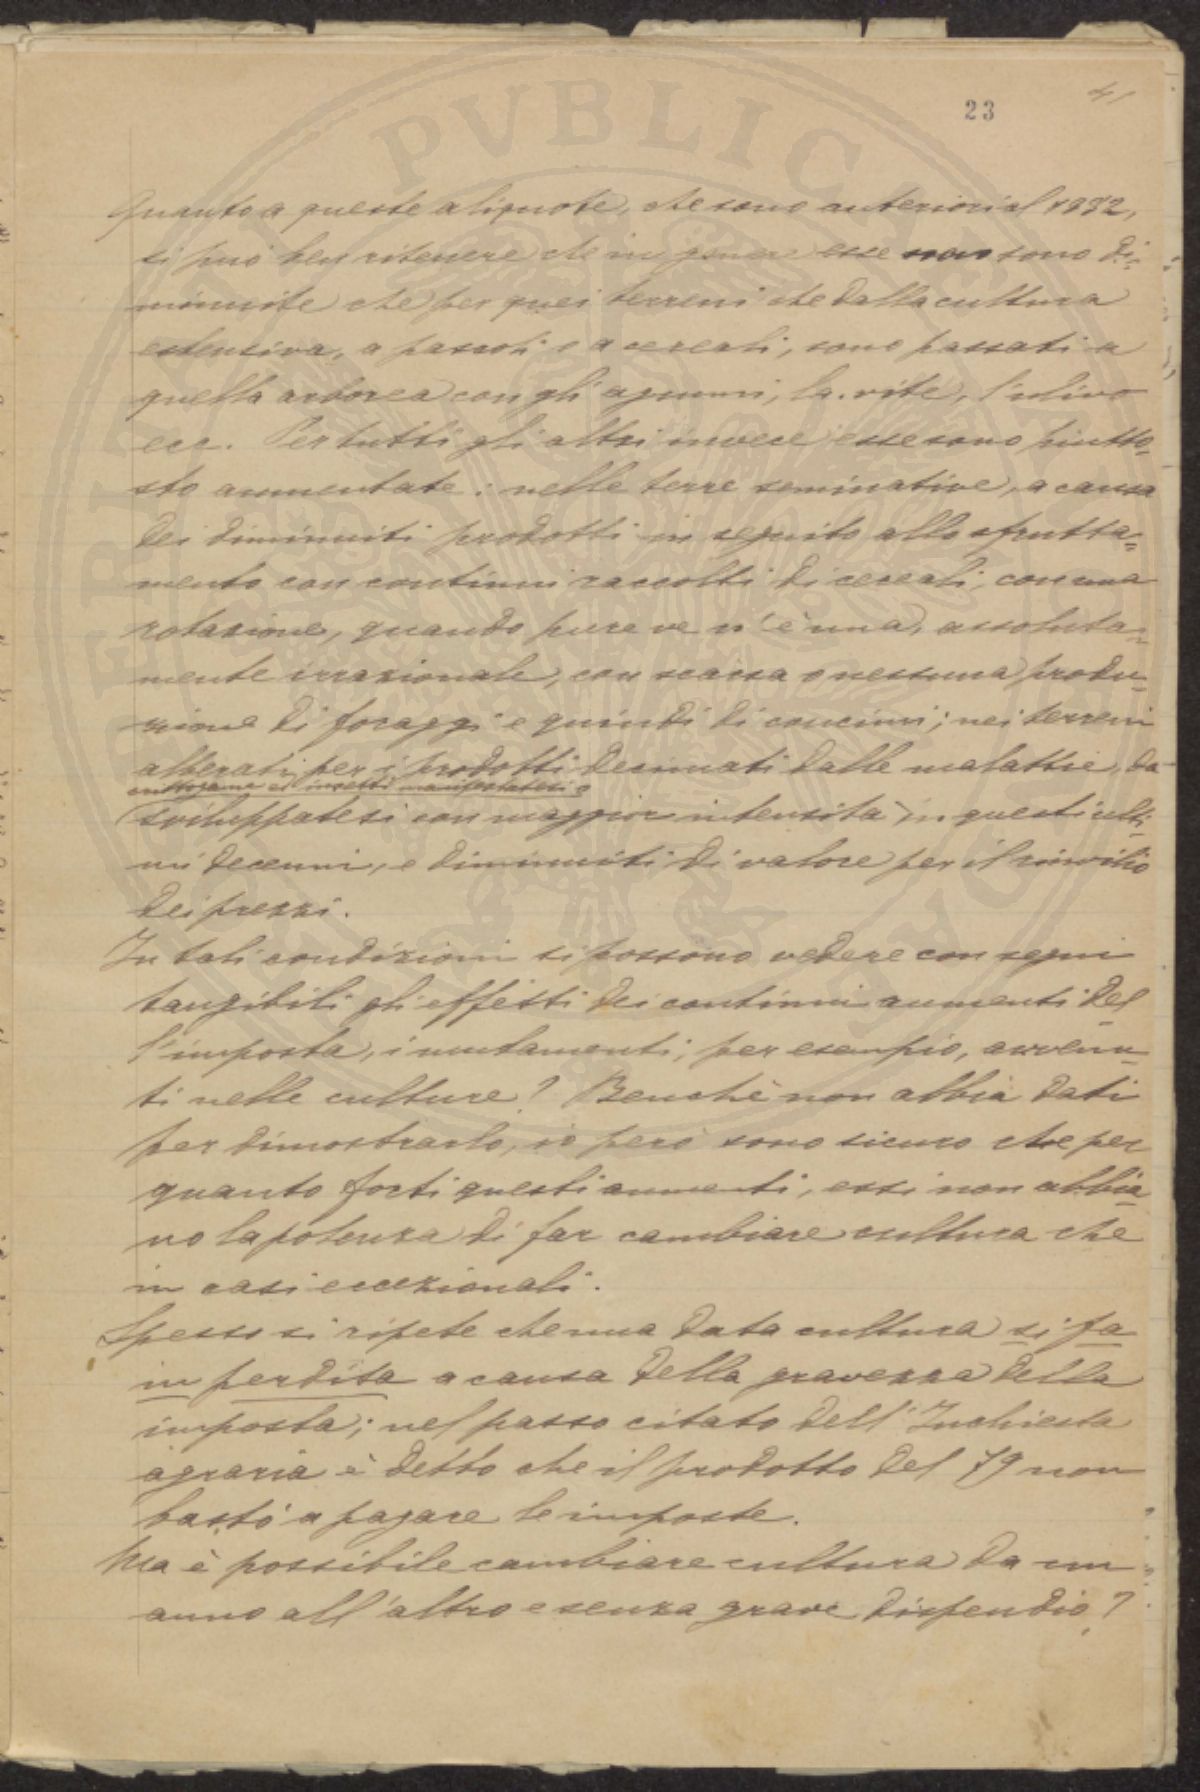 23
41
Quanto a queste aliquote, che sono anteriori al 1832,
si può ben ritenere che in genere esse non sono di-
minuite che per quei terreni che dalla cultura
estensiva, a pascoli o a cereali, sono passati a
quella arborea con gli agrumi, la vite, l'ulivo
ecc. Per tutti gli altri invece esse sono piutto-
sto aumentate: nelle terre seminative, a causa
dei diminuiti prodotti in seguito allo sfrutta=
mento con continui raccolti di cereali, con una
rotazione, quando pure ve n'è una, assoluta-
mente irrazionale, con scarsa o nessuna produ-
zione di foraggi e quindi di concimi; nei terreni
alberati per i prodotti decimati dalle malattie, da
crittogame ed insetti manifestatesi o
sviluppatesi con maggior intensità in questi ulti-
mi decenni, e diminuiti di valore per il rinvilio
dei prezzi.
In tali condizioni si possono vedere con segni
tangibili gli effetti dei continui aumenti del
l'imposta, i mutamenti, per esempio, avvenu-
ti nelle culture? Benchè non abbia dati
per dimostrarlo, io però sono sicuro che per
quanto forti questi aumenti, essi non abbia
no la potenza di far cambiare cultura che
in casi eccezionali.
Spesso si ripete che una data cultura si fa
in perdita a causa della gravezza della
imposta; nel passo citato dell'Inchiesta
agraria è detto che il prodotto del 79 non
bastò a pagare le imposte.
Ma è possibile cambiare cultura da un
anno all'altro e senza grave dispendio?
PVBLIC